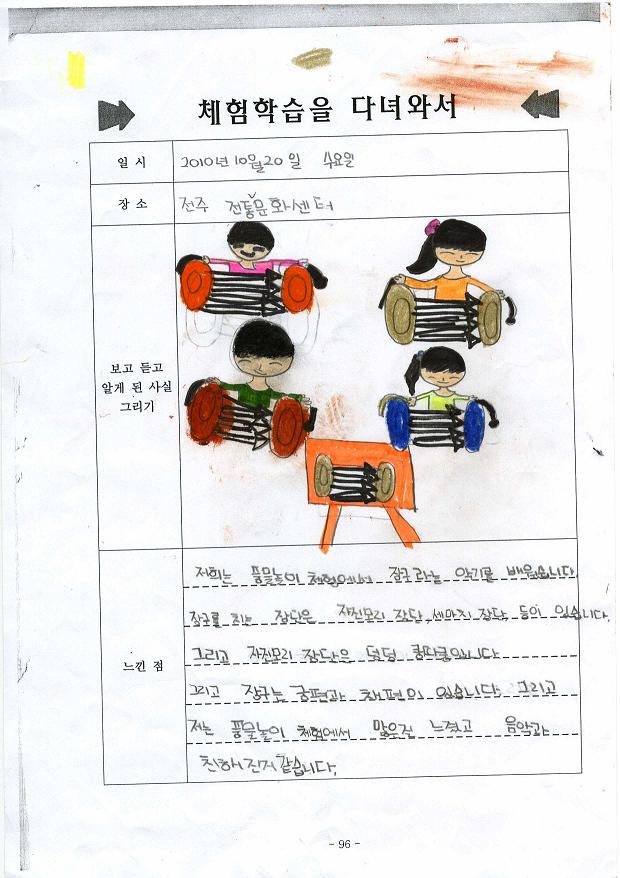 체험학습을 다녀와서
일 시
2010년 10월 20 일 수요일
장 소
전주 전통문화센터
보고 듣고
알게 된 사실
그리기
느낀 점
저희는 풍물놀이 체험에서 장구라는 악기를 배웠습니다.
장구를 치는 장단은 자진모리 장단, 세마치 장단, 등이 있습니다.
그리고 자진모리 장단은 덩덩 쿵따쿵입니다
그리고 장구는 궁편과 채편이 있습니다. 그리고
저는 풍물놀이 체험에서 많은걸 느꼈고 음악과
친해진거 같습니다.
- 96 -